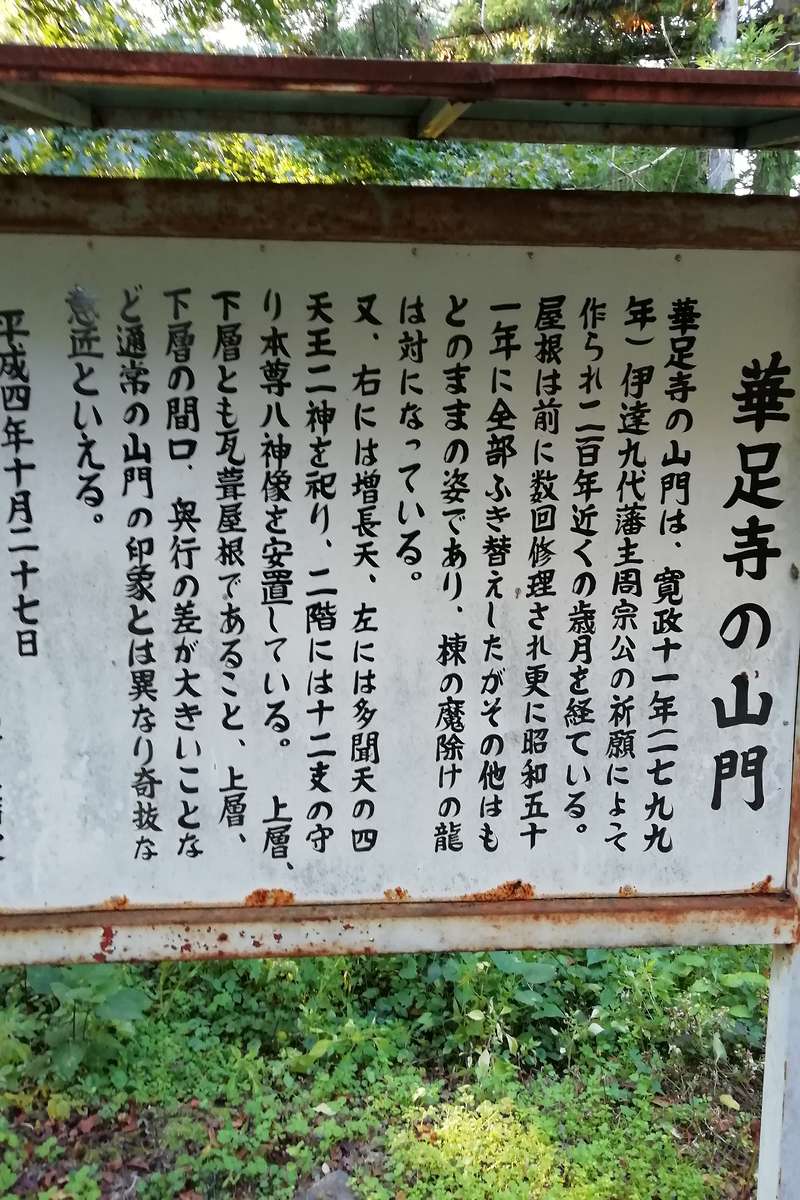 華足寺の山門
華足寺の山門は、寛政十一年(一七九九
年)伊達九代藩主周宗公の祈願によって
作られ二百年近くの歳月を経ている。
屋根は前に数回修理され更に昭和五十
一年に全部ふき替えしたがその他はも
とのままの姿であり、棟の魔除けの龍
は対になっている。
又、右には増長天、左には多聞天の四
天王二神を祀り、二階には十二支の守
り本尊八神像を安置している。 上層、
下層とも瓦葺屋根であること、上層、
下層の間口、奥行の差が大きいことな
ど通常の山門の印象とは異なり奇抜な
意匠といえる。
平成四年十月二十七日